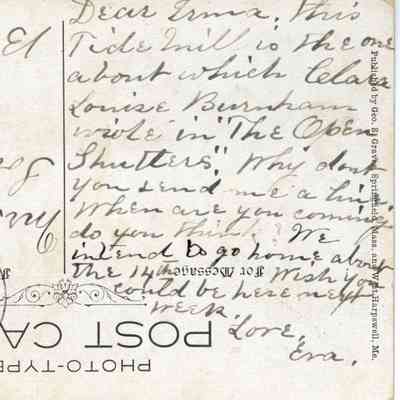 Dear Irma, This
Tide Mill is the one
about which Clara
Louise Burnham
wrote in "The Open
Shutters". Why dont
you send me a line.
When are you coming
do you think? We
intend to go home about
the 14th. Wish you
could be here next
week.
Love,
Eva.
For Message
POST CA
PHOTO-TYPE
Published by Geo. S. Graves, Springfield, Mass. and West Harpswell, Me.